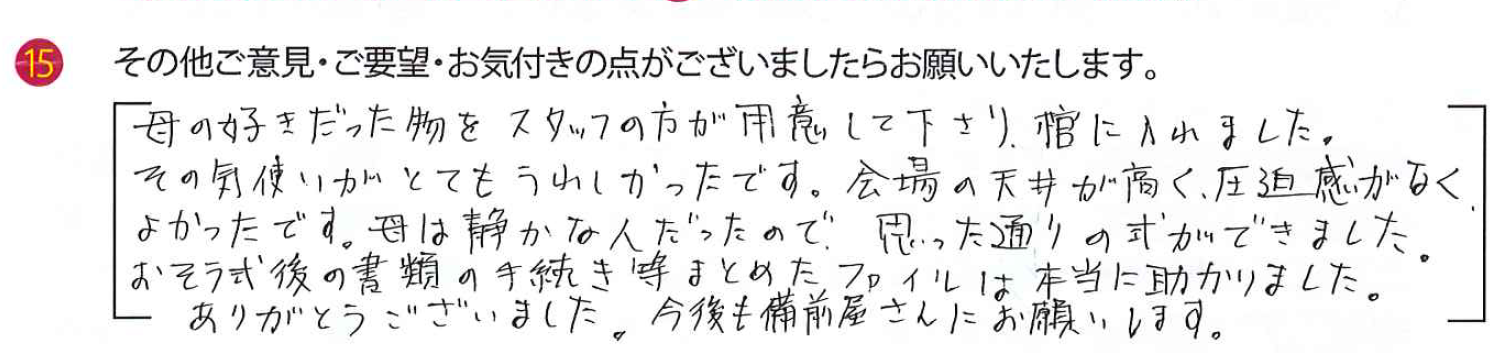 15 その他ご意見・ご要望・お気付きの点がございましたらお願いいたします。
母の好きだった物をスタッフの方が用意して下さり、棺に入れました。
その気使いがとてもうれしかったです。会場の天井が高く、圧迫感がなく、
よかったです。母は静かな人だったので、思った通りの式ができました。
おそう式後の書類の手続き等まとめたファイルは本当に助かりました。
ありがとうございました。今後も備前屋さんにお願いします。